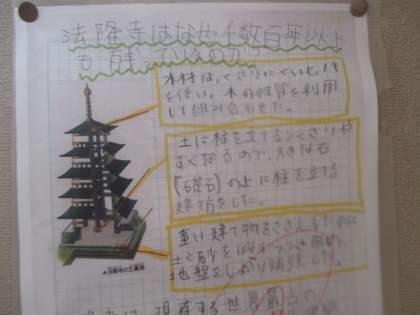 法隆寺はなぜ千数百年以上
も残っているのか
木材は、くさりにくいヒノキ
を使い、木の性質を利用
して組み合わせた。
土に柱を立てるとくさりや
すくなるので、大きな石
(礎石)の上に柱を立てる
建て方をした。
重い建て物をささえるために
土と砂を
地盤をしっかり
▲法隆寺の五重塔
現存する世界最古の